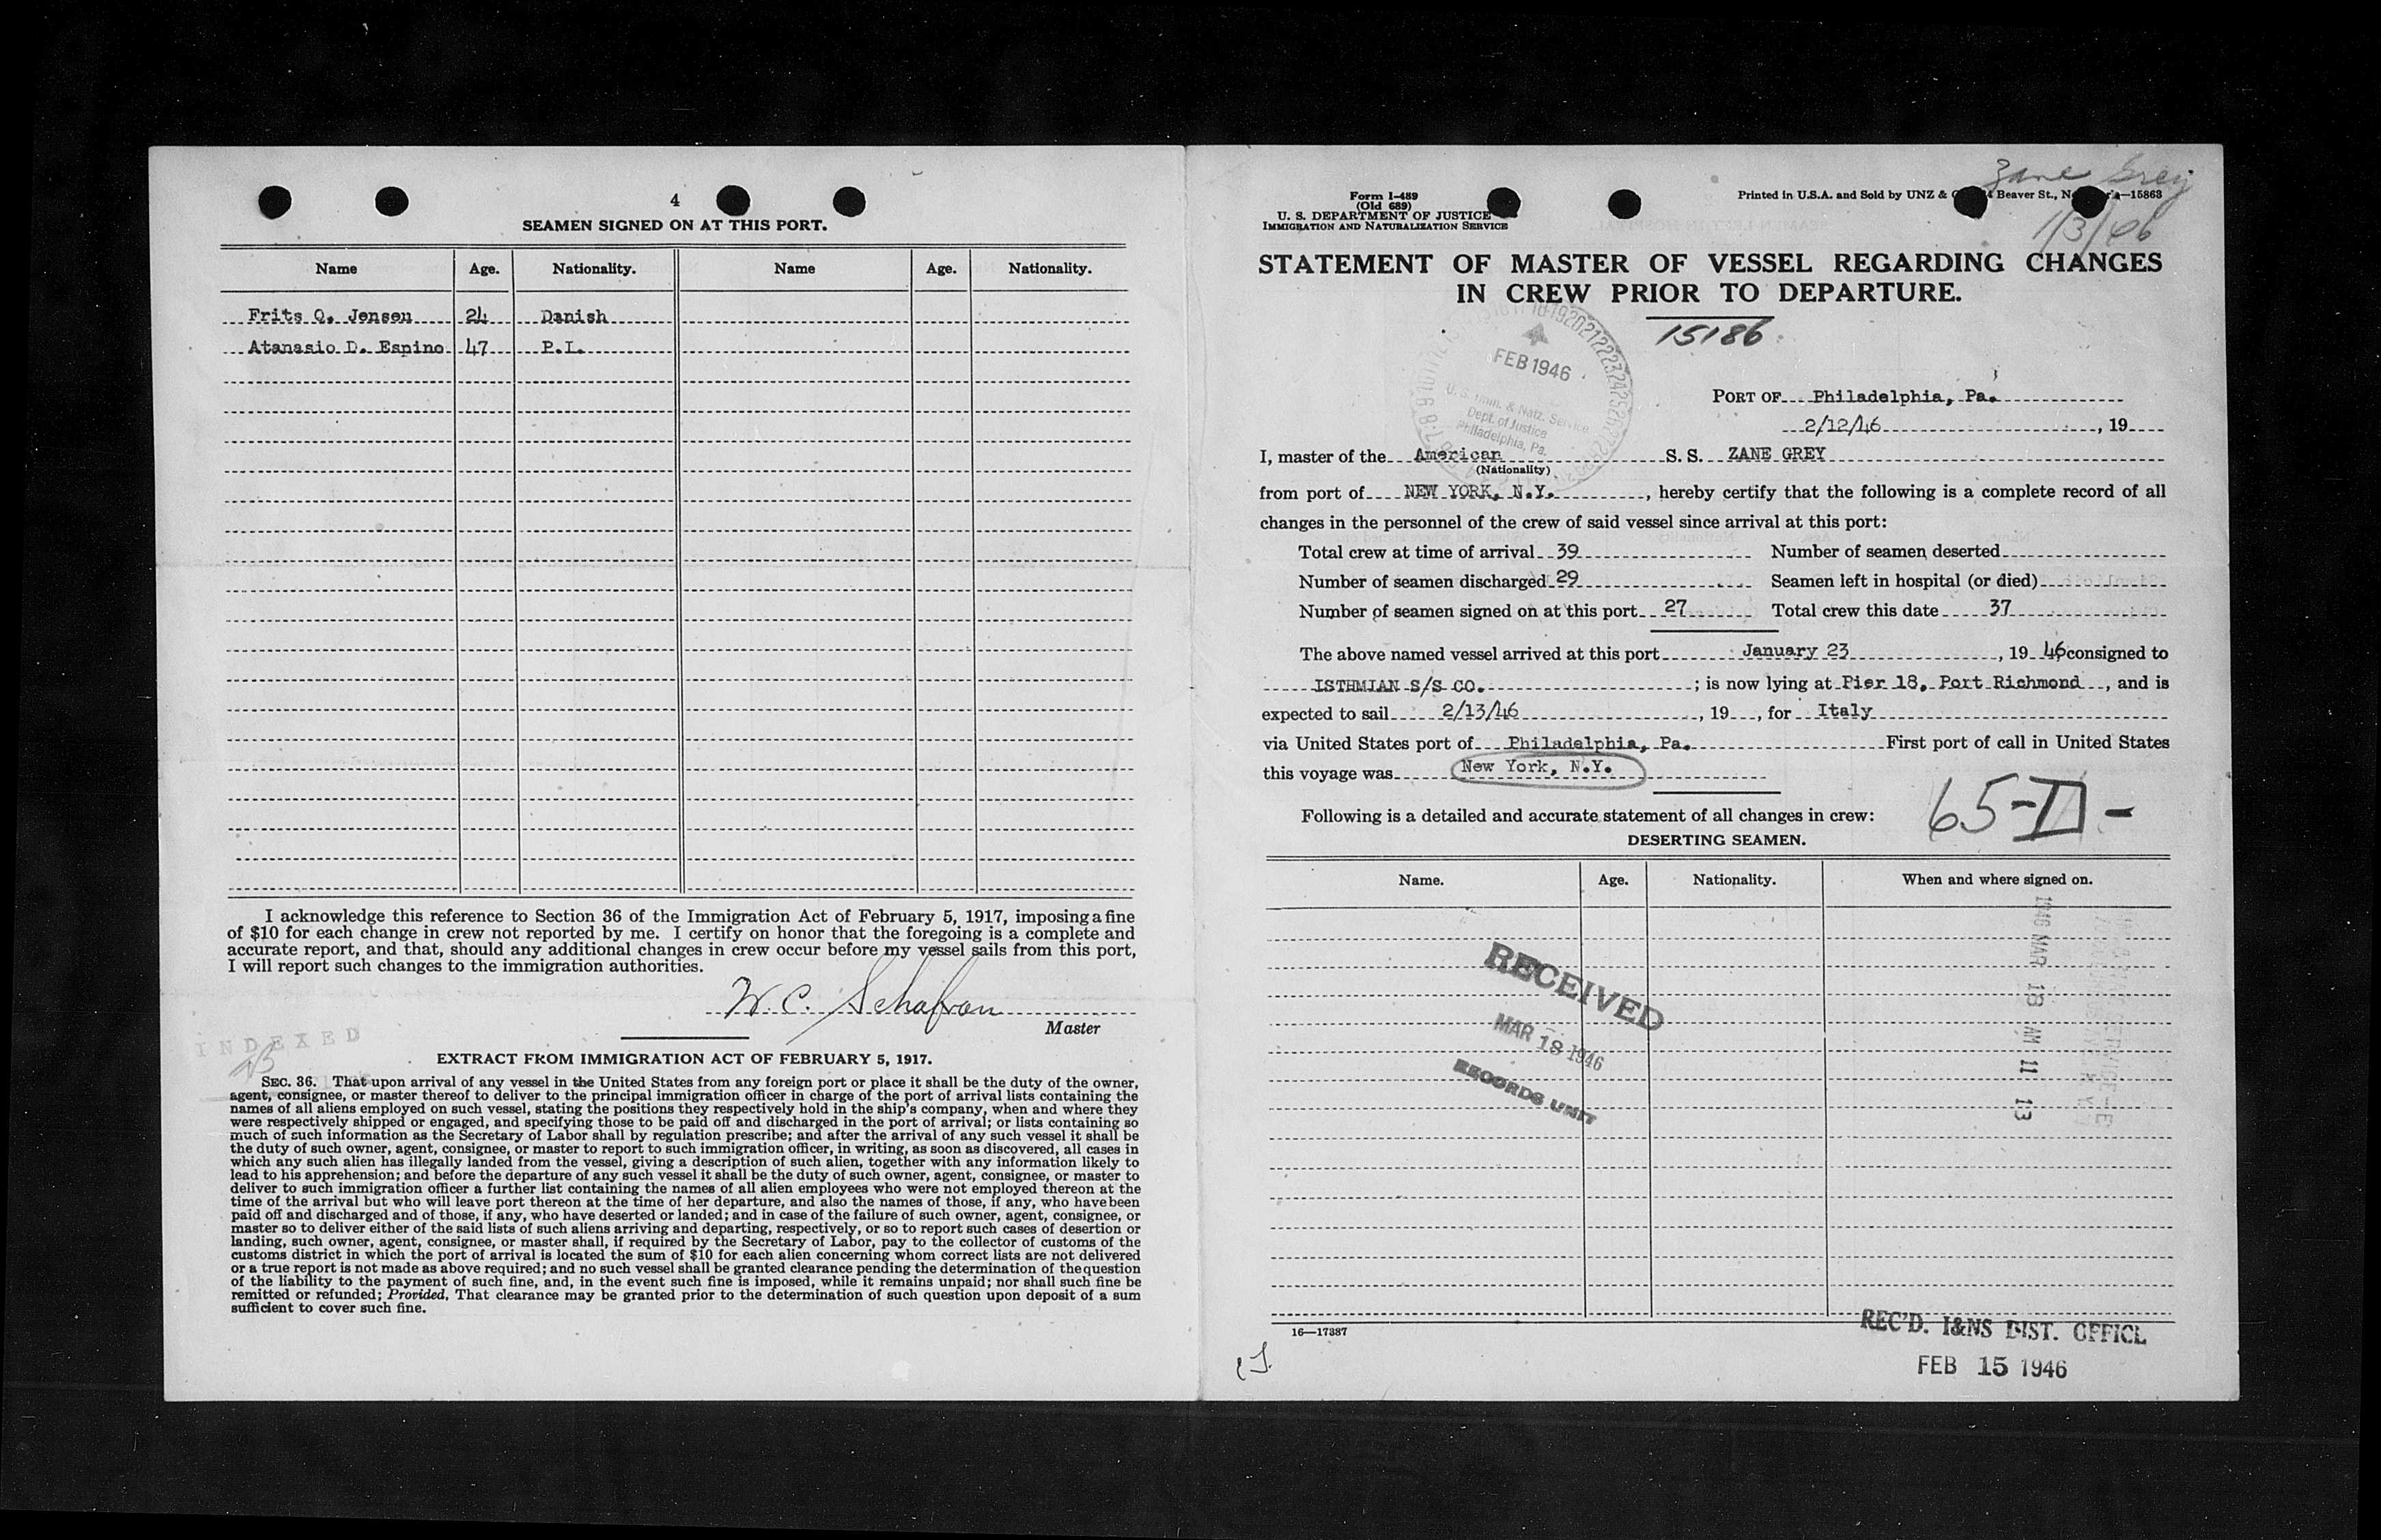 4
SEAMEN SIGNED ON AT THIS PORT.
Name Age. Nationality. Name Age. Nationality.
Frits Q. Jensen 24 Danish
Atanasio D. Espino 47 P.I.
I acknowledge this reference to Section 36 of the Immigration Act of February 5, 1917, imposing a fine
of $10 for each change in crew not reported by me. I certify on honor that the foregoing is a complete and
accurate report, and that, should any additional changes in crew occur before my vessel sails from this port,
I will report such changes to the immigration authorities.
W. C.
Master
INDEXED
EXTRACT FROM IMMIGRATION ACT OF FEBRUARY 5, 1917.
SEC. 36. That upon arrival of any vessel in the United States from any foreign port or place it shall be the duty of the owner,
agent, consignee, or master thereof to deliver to the principal immigration officer in charge of the port of arrival lists containing the
names of all aliens employed on such vessel, stating the positions they respectively hold in the ship's company, when and where they
were respectively shipped or engaged, and specifying those to be paid off and discharged in the port of arrival; or lists containing so
much of such information as the Secretary of Labor shall by regulation prescribe; and after the arrival of any such vessel it shall be
the duty of such owner, agent, consignee, or master to report to such immigration officer, in writing, as soon as discovered, all cases in
which any such alien has illegally landed from the vessel, giving a description of such alien, together with any information likely to
lead to his apprehension; and before the departure of any such vessel it shall be the duty of such owner, agent, consignee, or master to
deliver to such immigration officer a further list containing the names of all alien employees who were not employed thereon at the
time of the arrival but who will leave port thereon at the time of her departure, and also the names of those, if any, who have been
paid off and discharged and of those, if any, who have deserted or landed; and in case of the failure of such owner, agent, consignee, or
master so to deliver either of the said lists of such aliens arriving and departing, respectively, or so to report such cases of desertion or
landing, such owner, agent, consignee, or master shall, if required by the Secretary of Labor, pay to the collector of customs of the
customs district in which the port of arrival is located the sum of $10 for each alien concerning whom correct lists are not delivered
or a true report is not made as above required; and no such vessel shall be granted clearance pending the determination of the question
of the liability to the payment of such fine, and, in the event such fine is imposed, while it remains unpaid; nor shall such fine be
remitted or refunded; Provided, That clearance may be granted prior to the determination of such question upon deposit of a sum
sufficient to cover such fine.
Zane Grey
1/3/46
Form I-489
(Old 689)
U. S. DEPARTMENT OF JUSTICE
IMMIGRATION AND NATURALIZATION SERVICE
Printed in U.S.A. and Sold by UNZ & Beaver St., —15863
STATEMENT OF MASTER OF VESSEL REGARDING CHANGES
IN CREW PRIOR TO DEPARTURE.
15186
FEB 1946
U. S. Imm. & Natz. Service
Dept. of Justice
Philadelphia, Pa.
PORT OF Philadelphia, Pa.
2/12/46, 19
I, master of the American S. S. ZANE GREY
(Nationality)
from port of NEW YORK, N.Y., hereby certify that the following is a complete record of all
changes in the personnel of the crew of said vessel since arrival at this port:
Total crew at time of arrival 39 Number of seamen deserted
Number of seamen discharged 29 Seamen left in hospital (or died)
Number of seamen signed on at this port 27 Total crew this date 37
The above named vessel arrived at this port January 23, 19 46 consigned to
ISTHMIAN S/S CO.; is now lying at Pier 18, Port Richmond, and is
expected to sail 2/13/46, 19, for Italy
via United States port of Philadelphia, Pa. First port of call in United States
this voyage was New York, N.Y.
65-II-
Following is a detailed and accurate statement of all changes in crew:
DESERTING SEAMEN.
Name. Age. Nationality. When and where signed on.
RECEIVED
MAR 18 1946
RECORDS UNIT
1946 MAR 18 AM 11 13
16—17387
REC'D. I&NS DIST. OFFICE
FEB 15 1946